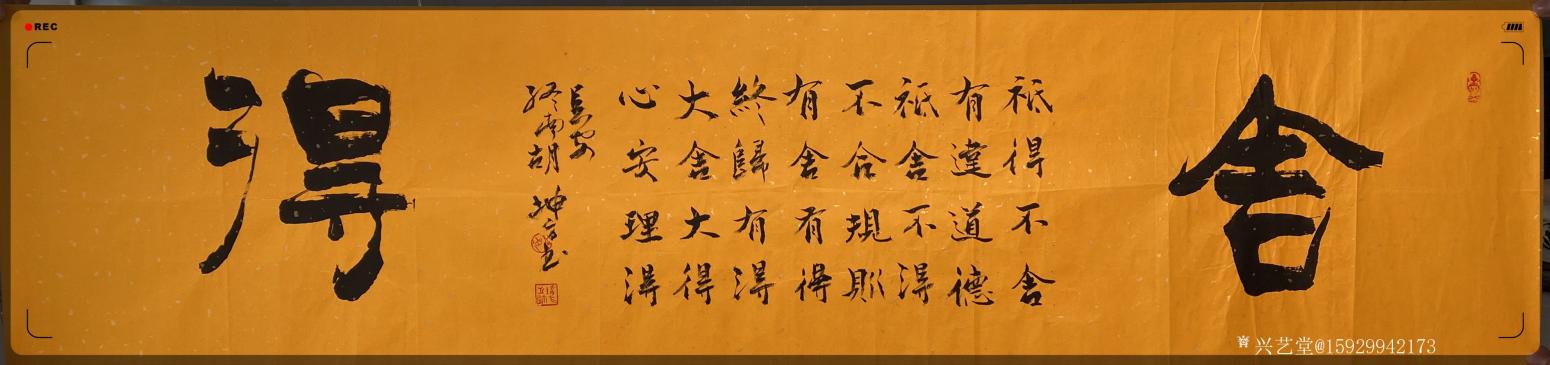 REC
舍
祇得不舍
有違道德
祇舍不得
不合規則
有舍有得
終歸有得
大舍大得
心安理得
終南胡坤
得
兴艺堂@15929942173